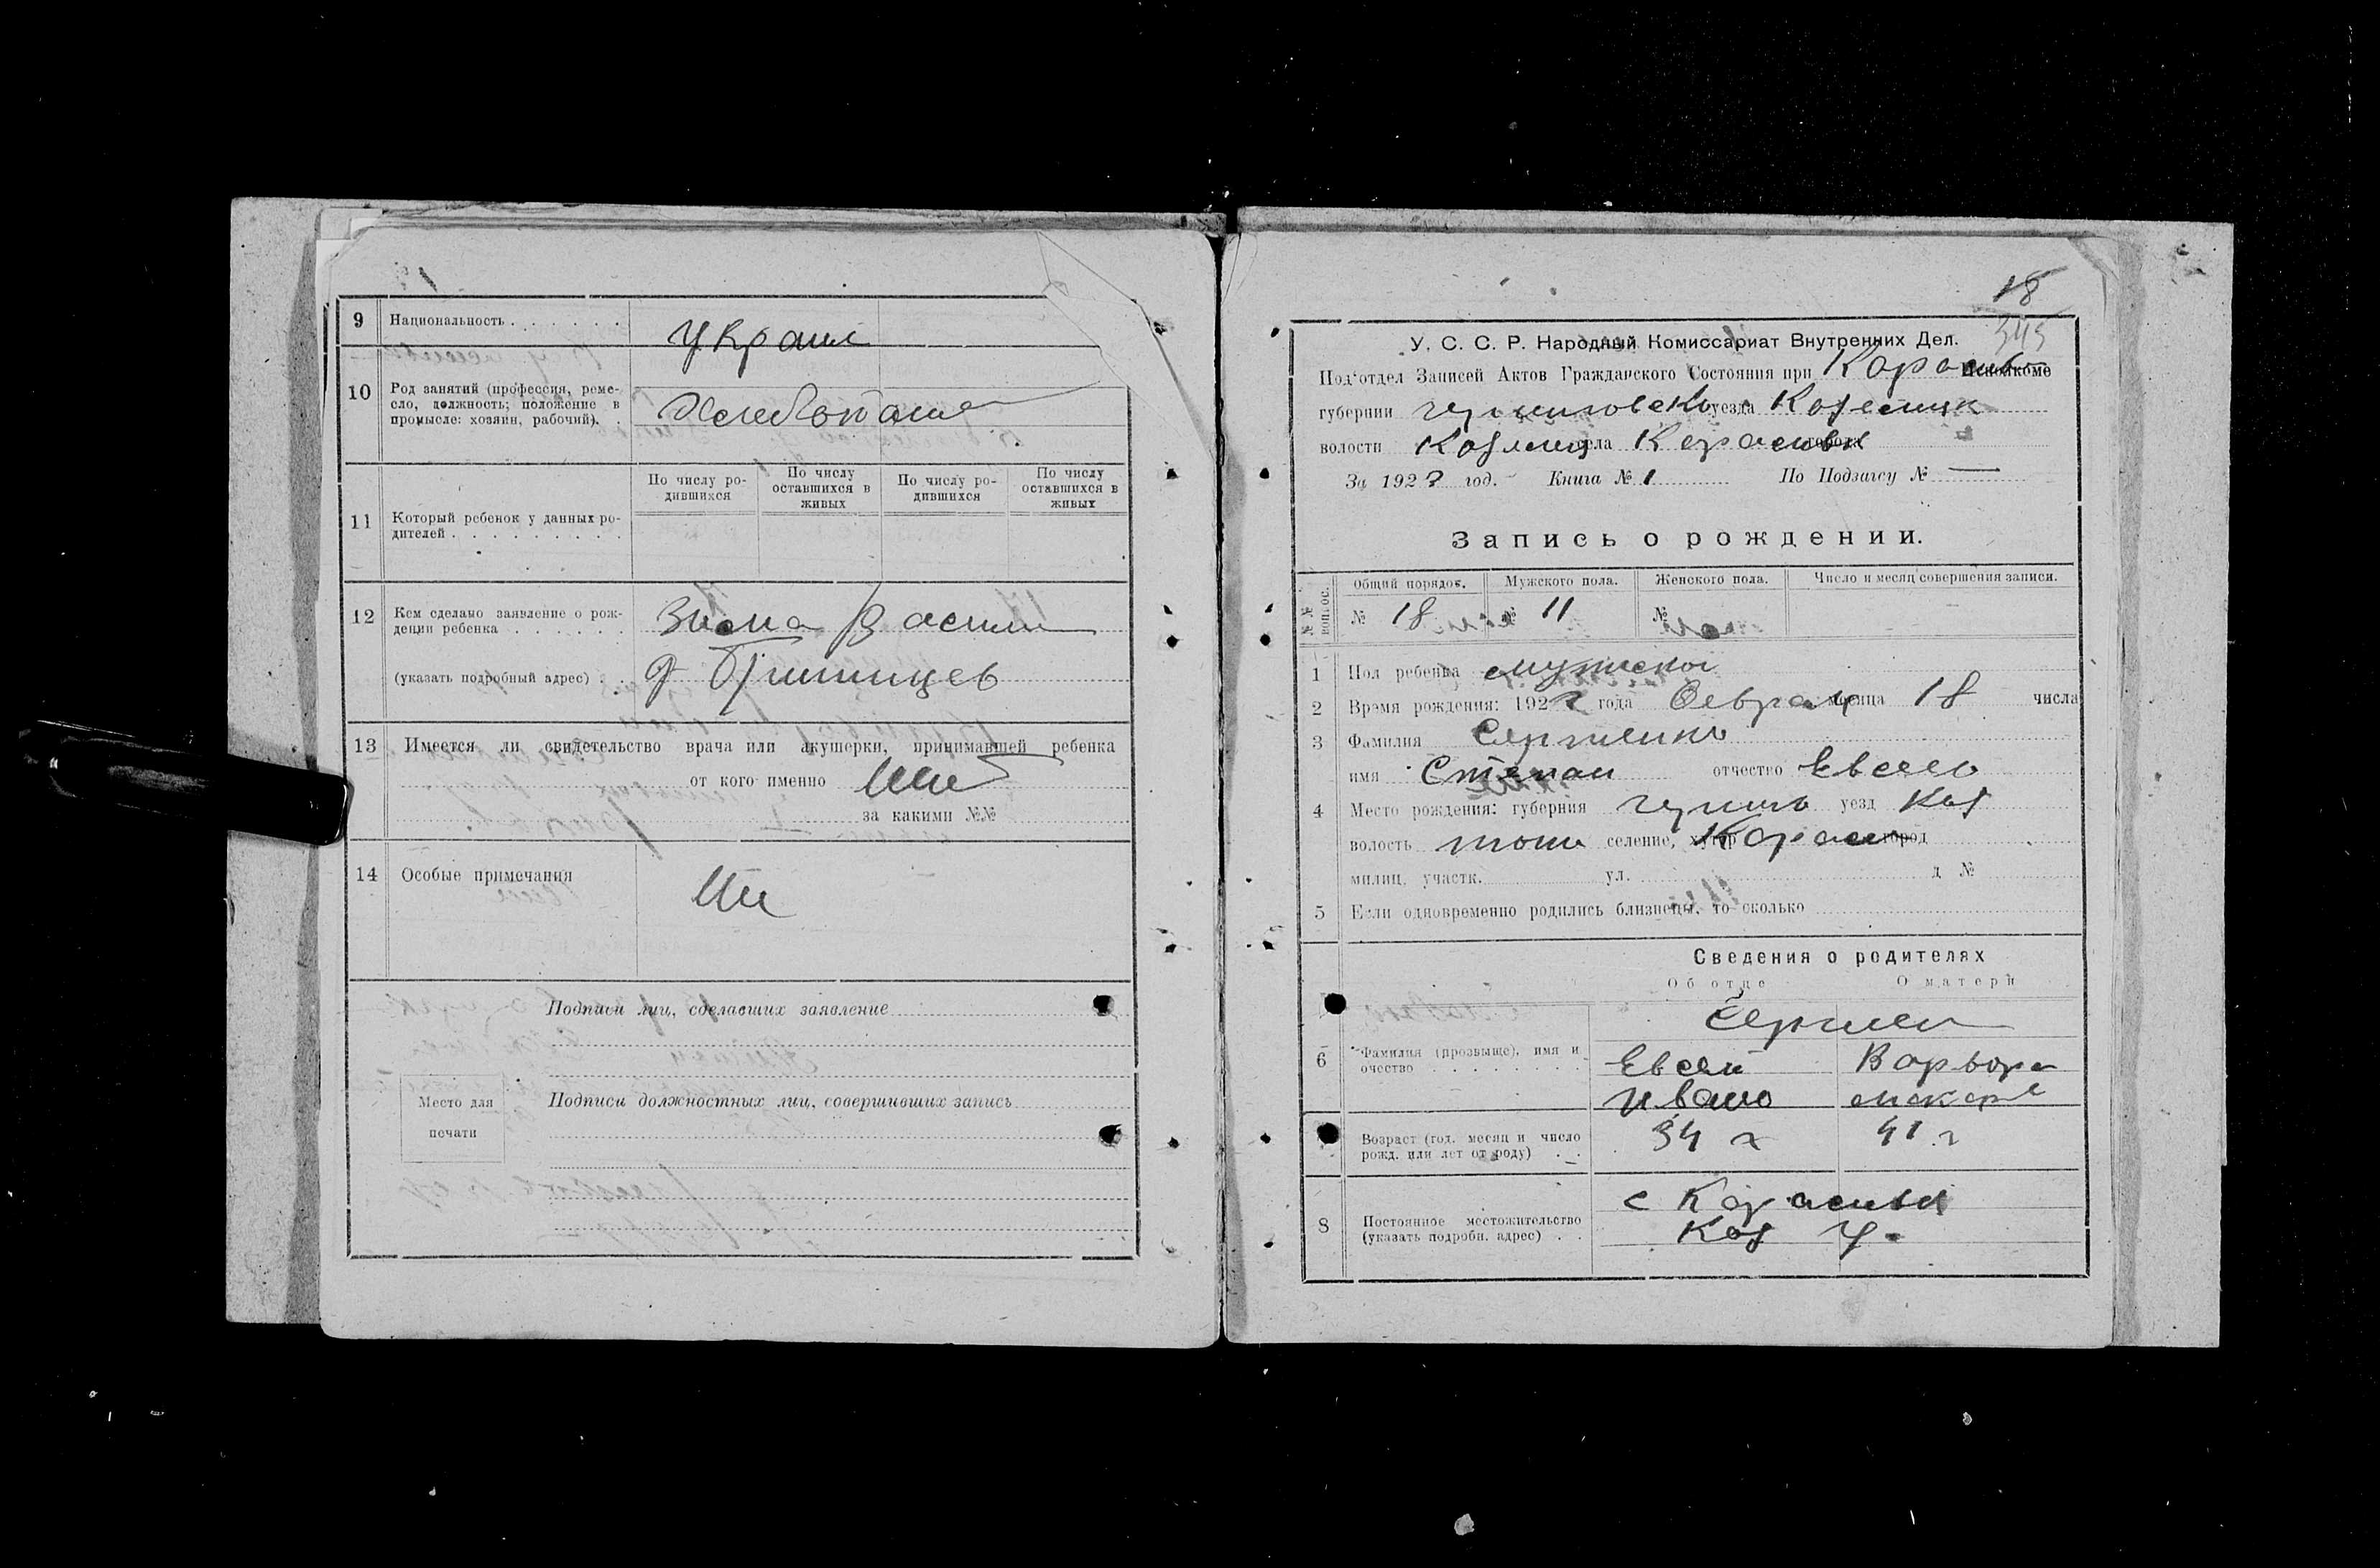 9 Национальность . . . . . . .
Украин
10 Род занятий (профессия, реме-
сло, должность; положение в
промысле: хозяин, рабочий). .
Хлебопаше
По числу ро-
дившихся
По числу
оставшихся в
живых
По числу ро-
дившихся
По числу
оставшихся в
живых
11 Который ребенок у данных ро-
дителей . . . . . . . . . .
12 Кем сделано заявление о рож-
дении ребенка . . . . . .
Зиома Васили
(указать подробный адрес) . .
13 Имеется ли свидетельство врача или акушерки, принимавшей ребенка
от кого именно
за какими №№
14 Особые примечания
Подписи лиц, сделавших заявление
Место для
печати
Подписи должностных лиц, совершивших запись
18
345
У. С. С. Р. Народный Комиссариат Внутренних Дел.
Под'отдел Записей Актов Гражданского Состояния при Карасин Исполкоме
губернии Черниговско уезда Козелецк
волости Козелец села Карасивк города
За 1922 год. Книга № 1 По Подзагсу № —
Запись о рождении.
№№ вопрос.
Общий порядок. Мужского пола. Женского пола. Число и месяц совершения записи.
№ 18 № 11 №
1 Пол ребенка мужской
2 Время рождения: 1922 года Феврал месяца 18 числа
3 Фамилия Сергиенко
имя Степан отчество Евсеев
4 Место рождения: губерния Черниго уезд Коз
волость тоже селение, хутор Караси город
милиц. участк. ул. д №
5 Если одновременно родились близнецы, то сколько
Сведения о родителях
Об отце О матери
Сергиен
6 Фамилия (прозвыще), имя и
очество . . . . . . . . .
Евсей Варвара
Ивано Макаре
Возраст (год, месяц и число
рожд. или лет от роду) . .
34 г 41 г
8 Постоянное местожительство
(указать подробн. адрес) . .
с Карасивк
Коз у.